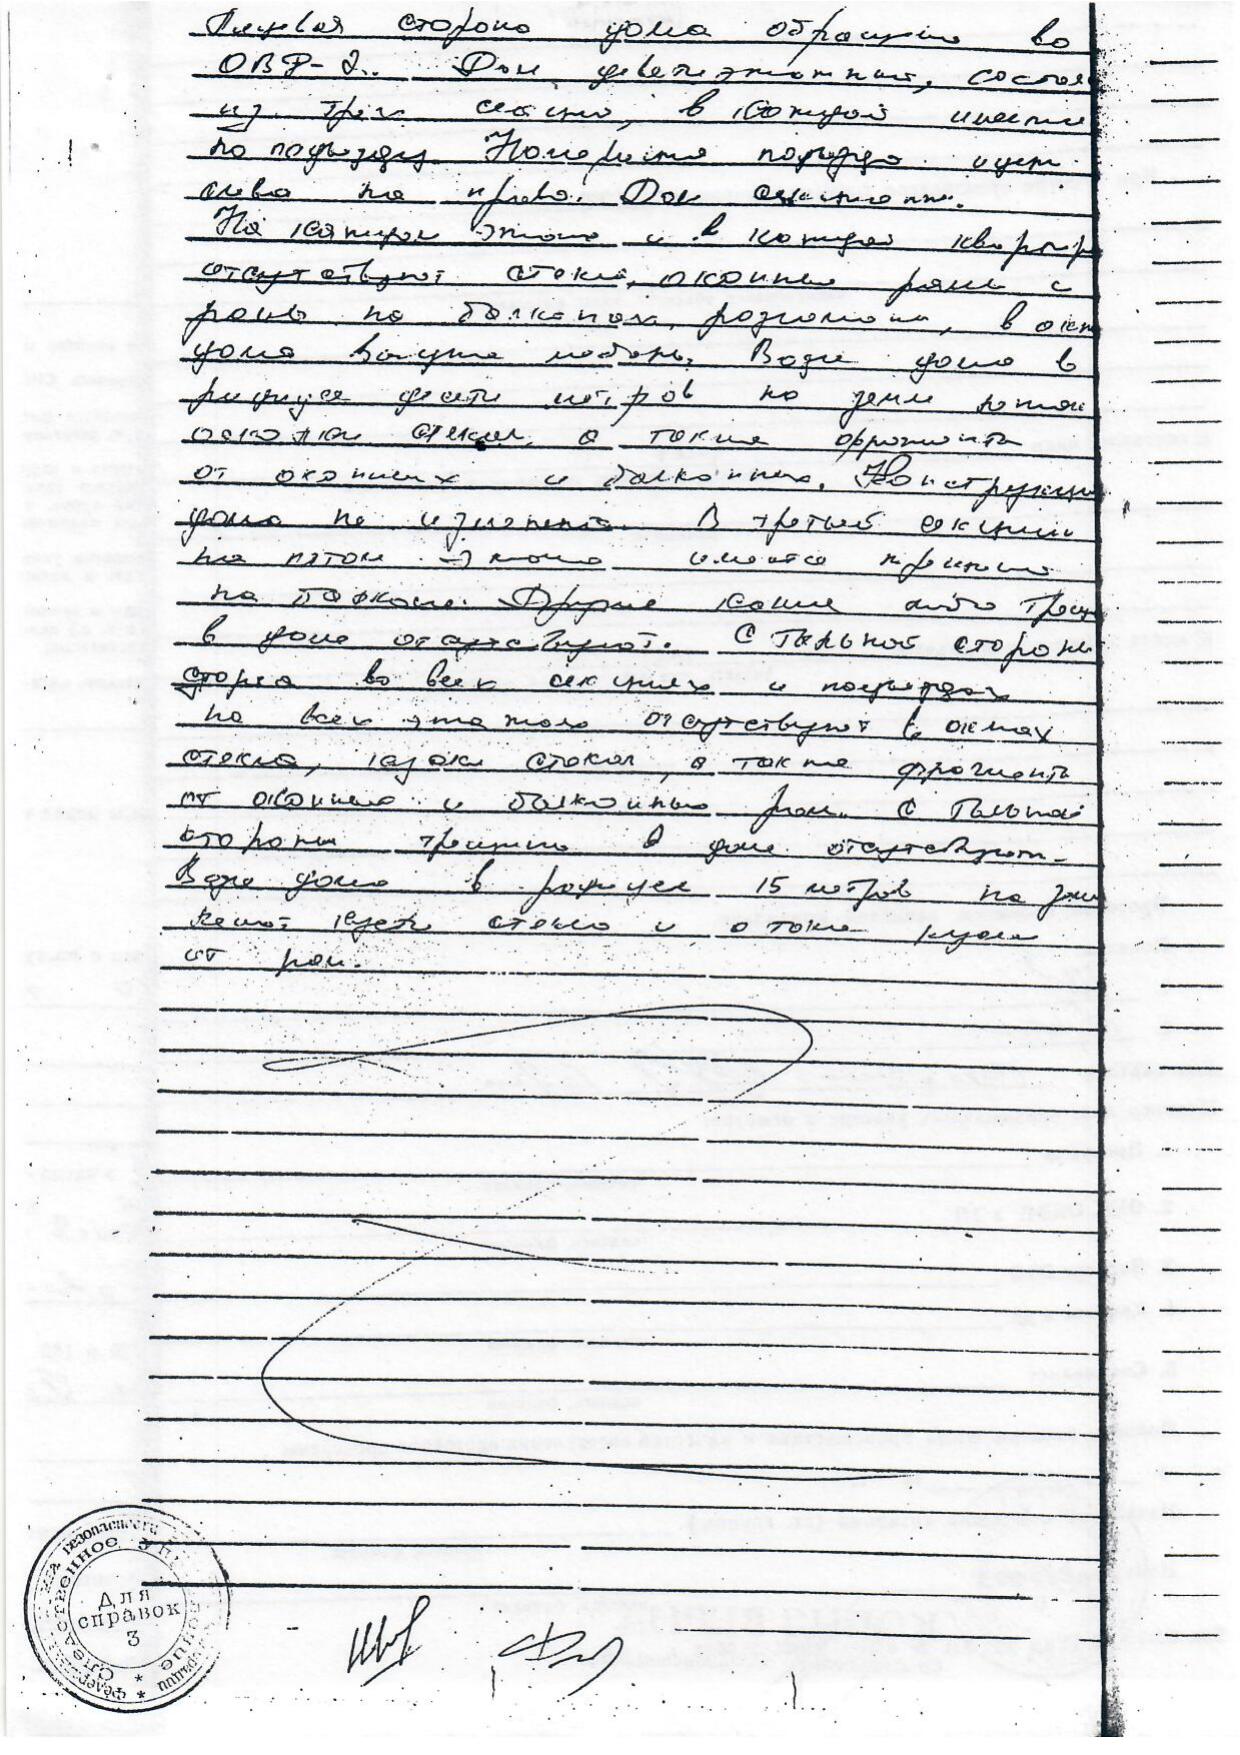 Лицевая сторона дома обращена во
ОВР-2. Дом девятиэтажный, состоя
из трех секций, в каждой имеется
по подъезду. Нумерация подъезда идет
слева на право. Дом
На каждом этаже и в каждой квартире
отсутствуют стекла, оконные рамы и
рамы на балконах разломаны, в окна
дома мебель. Возле дома в
радиусе десяти метров на земле лежат
осколки стекол, а также фрагменты
от оконных и балконных. Конструкция
дома не изменена. В третьей секции
на пятом этаже имеется трещина
на балконе. Другие какие либо трещ
в доме отсутствуют. С тыльной стороны
сторна во всех секциях и подъездах
на всех этажах отсутствуют в окнах
стекла, куски стекол, а также фрагменты
от оконных и балконных рам. С тыльной
стороны трещины в доме отсутствуют.
Возле дома в радиусе 15 метров на земле
лежат куски стекла и а также куски
от рам.
Федеральная служба безопасности
Следственное управление
Для
справок
3